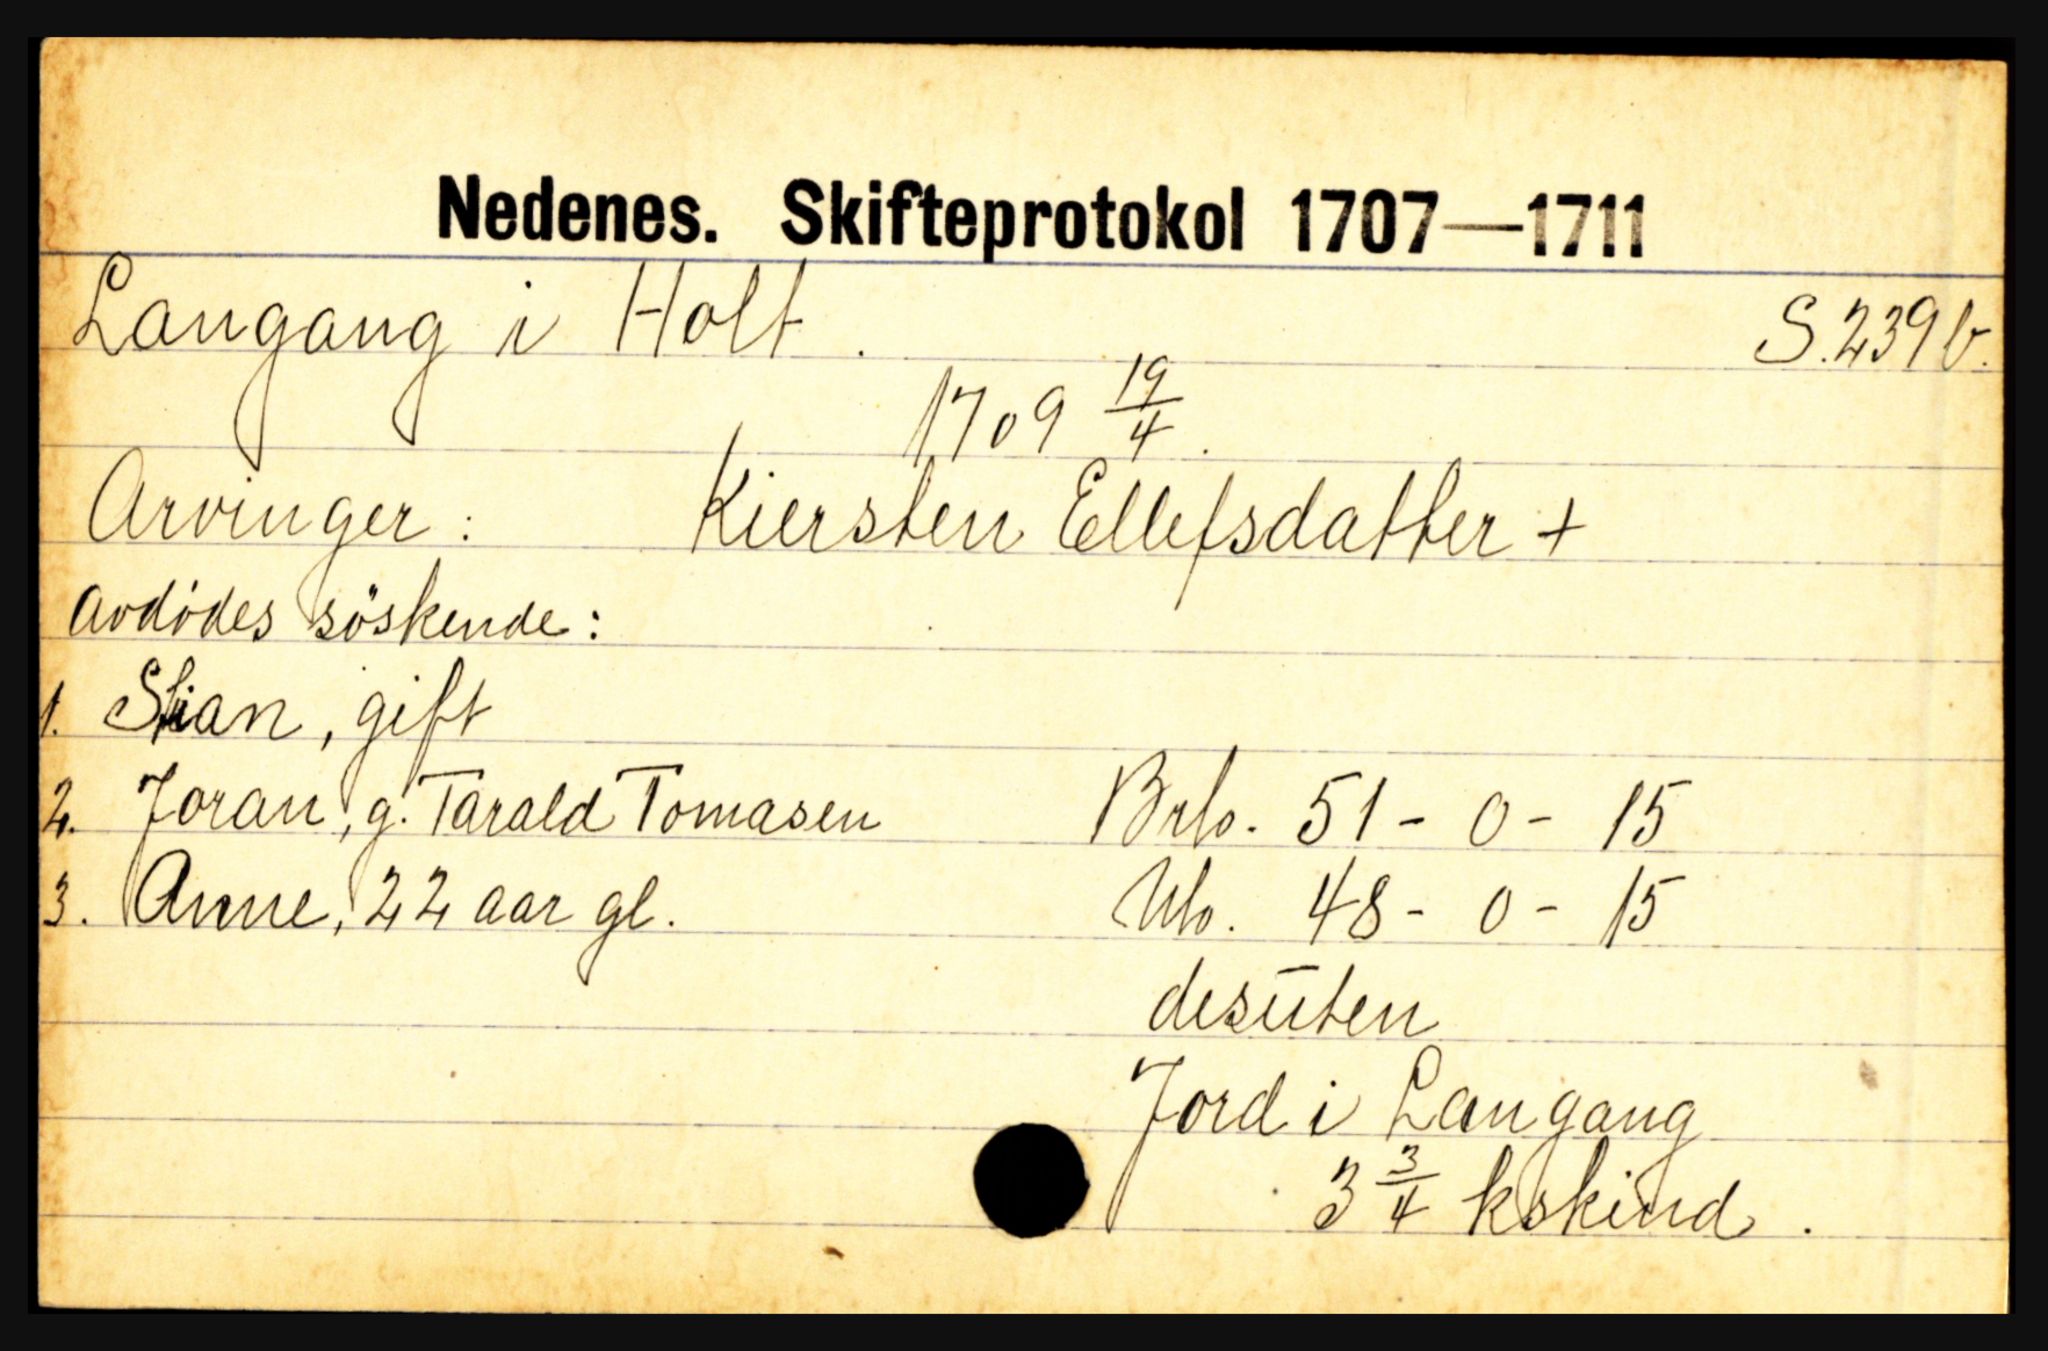 Nedenes. Skifteprotokol 1707—1711
Langang i Holt. S. 239 b.
1709 19/4.
Arvinger: Kiersten Ellefsdatter +
avdödes söskende:
1. Stian, gift
2. Joran, g. Tarald Tomasen Brto. 51 - 0 - 15
3. Anne, 22 aar gl. Nto. 48 - 0 - 15
desuten
Jord i Langang
3 3/4 kskind.